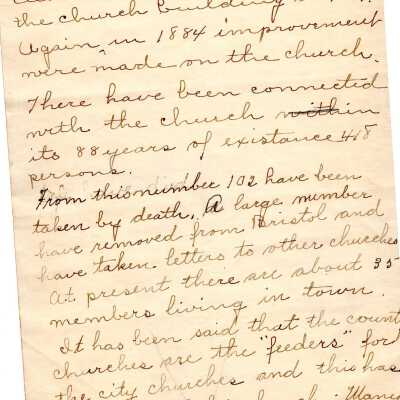 the church building
Again in 1884 improvement
were made on the church.
There have been connected
with the church within
its 88 years of existance 418
persons.
From this number 102 have been
taken by death. A large number
have removed from Bristol and
have taken letters to other churches
At present there are about 35
members living in town.
It has been said that the count
churches are the "feeders" for
the city churches and this has
church. Many